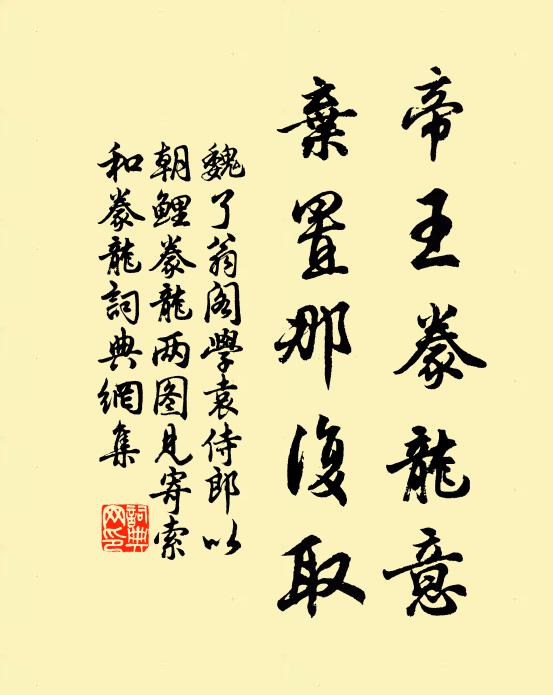 帝王豢龍意
棄置那復取
魏了翁阁學袁侍郎以
朝鲤豢龍两图見寄索
和豢龍詞典網集
詞典
网印